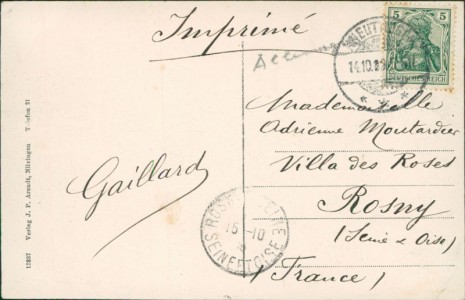 Imprimé
5 5
DEUTSCHES REICH
14.10.
Mademoiselle
Adrienne Moutardier
Villa des Roses
Rosny
(Seine & Oise)
(France)
Gaillard
15-10
SEINE ET OISE
12887 Verlag J. P. Arendt, Nüringen Telefon 21